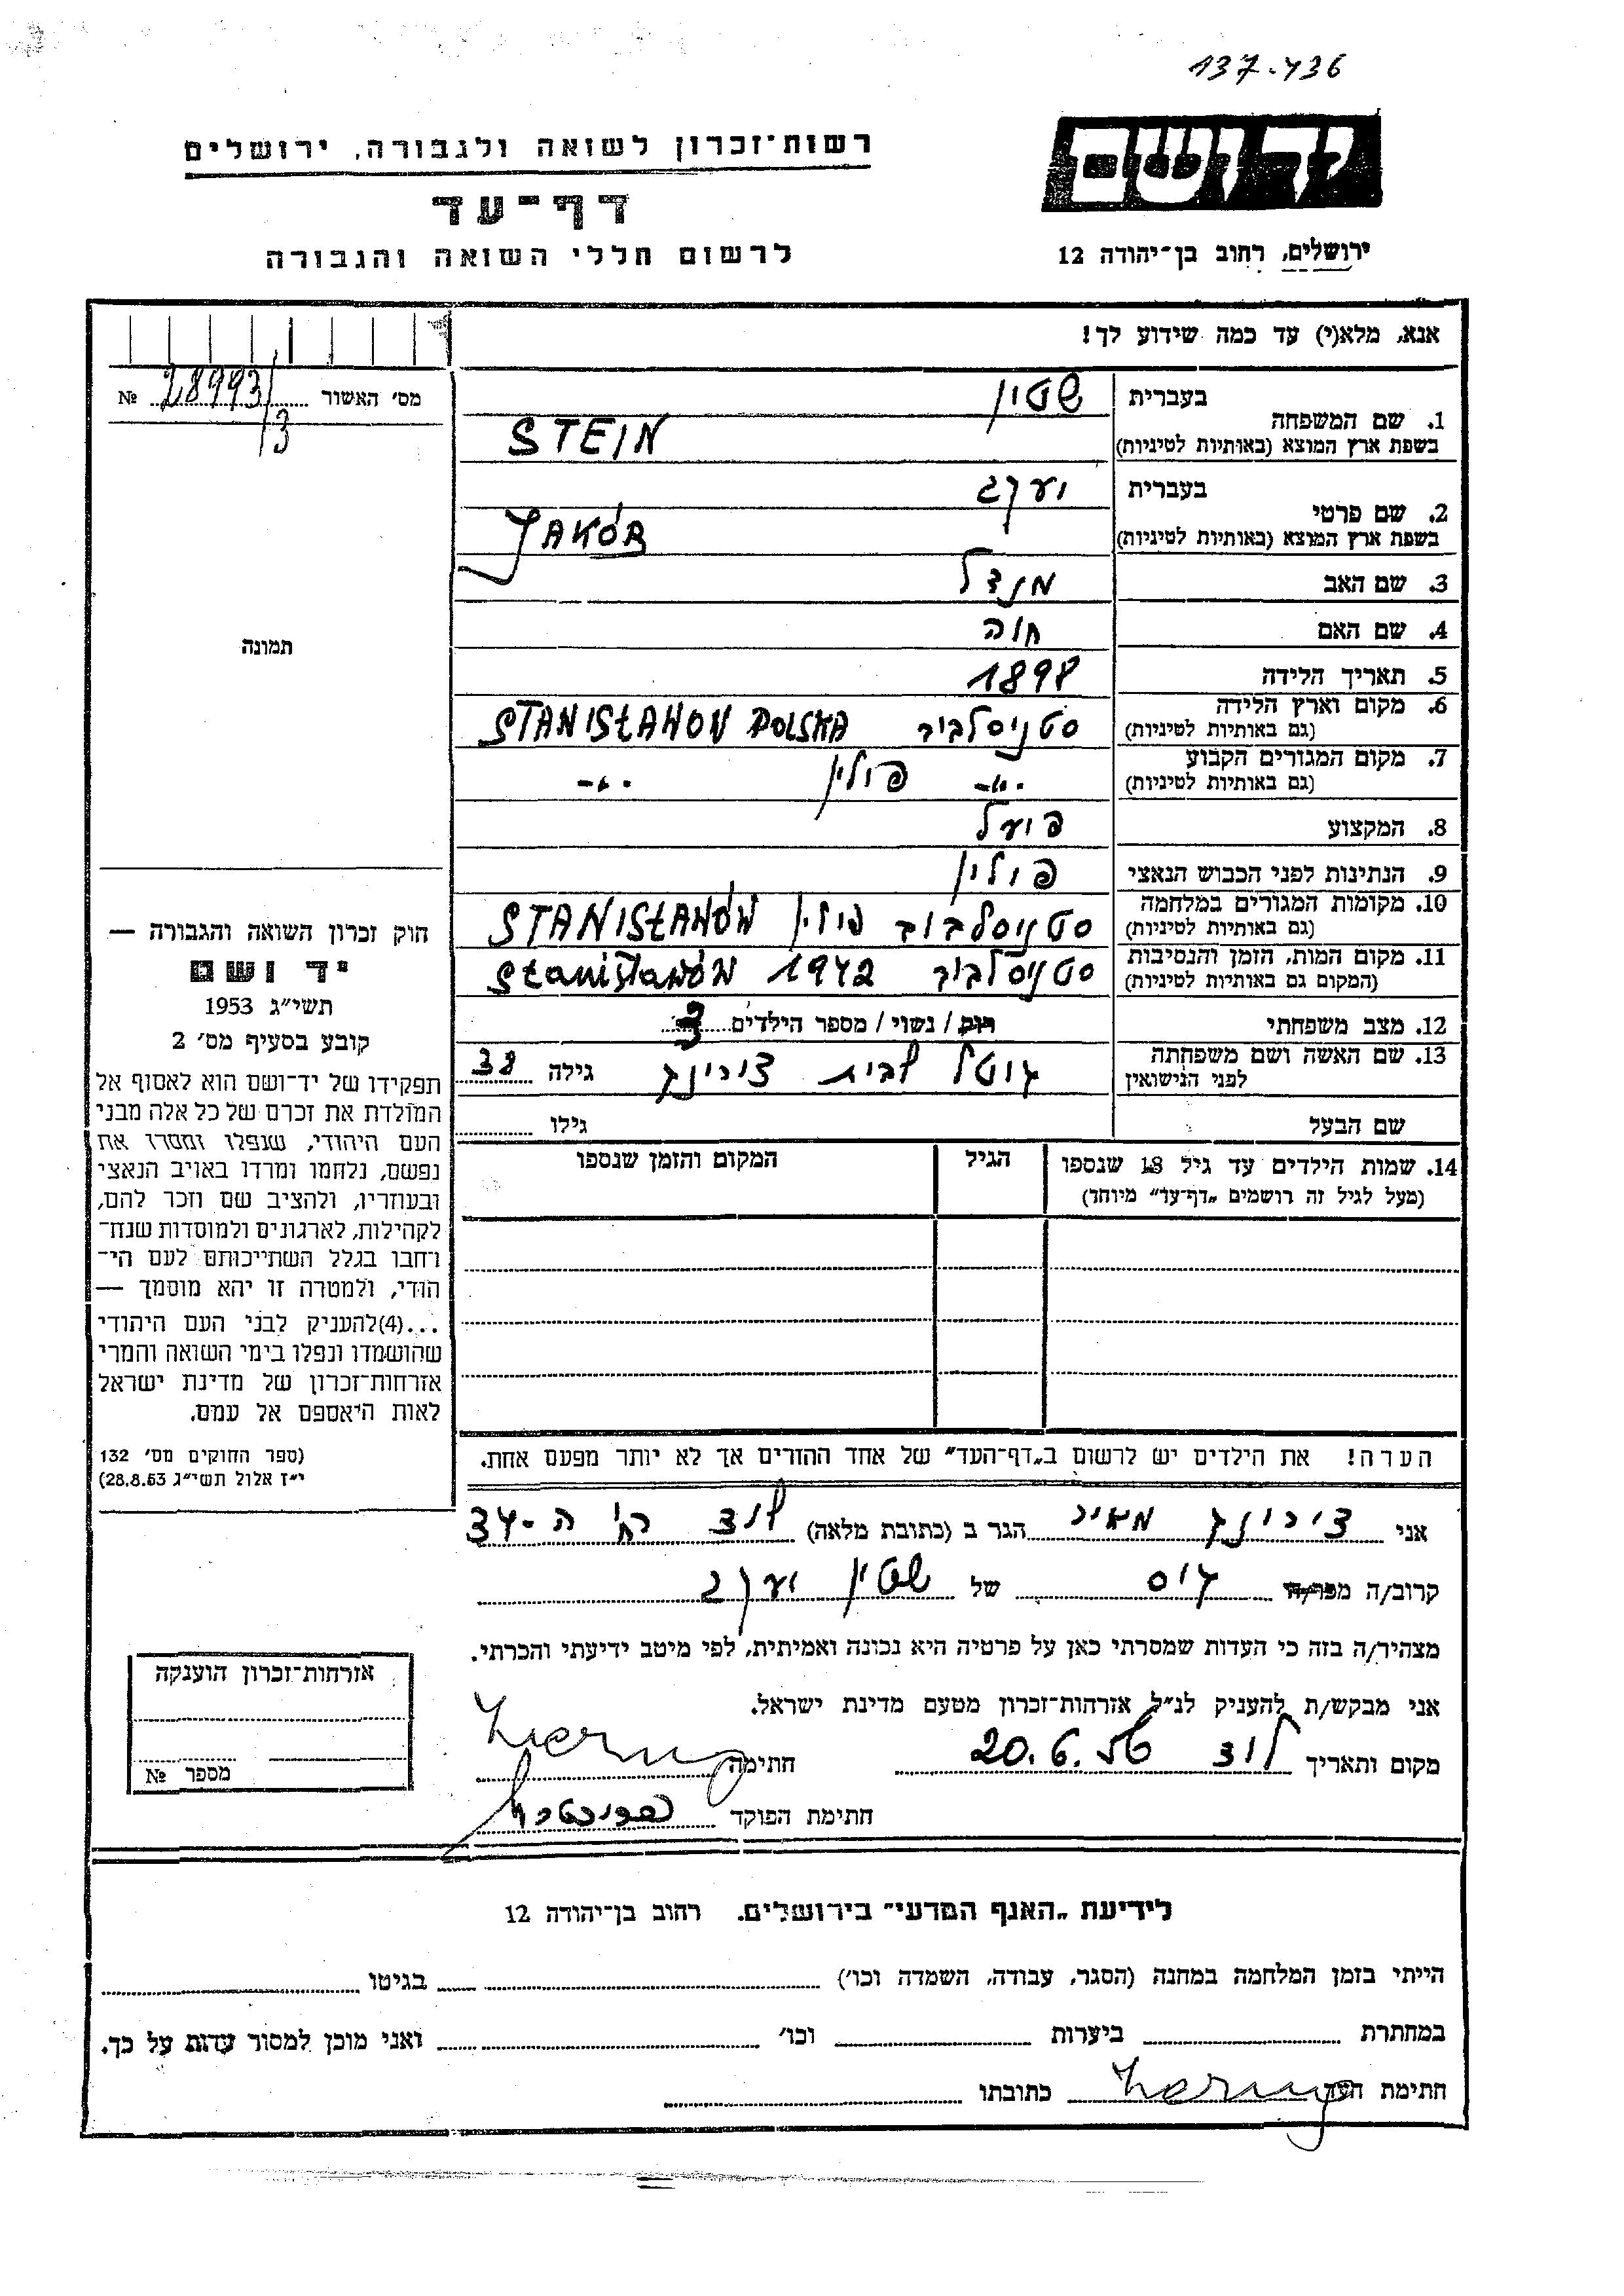 137-436
יד ושם
רשות־זכרון לשואה ולגבורה, ירושלים
דף־עד
לרשום חללי השואה והגבורה
ירושלים, רחוב בן־יהודה 12
אנא, מלא(י) עד כמה שידוע לך!
מס׳ האשור 28993/ №
/3
תמונה
חוק זכרון השואה והגבורה —
יד ושם
תשי״ג 1953
קובע בסעיף מס׳ 2
תפקידו של יד־ושם הוא לאסוף אל
המולדת את זכרם של כל אלה מבני
העם היהודי, שנפלו ומסרו את
נפשם, נלחמו ומרדו באויב הנאצי
ובעוזריו, ולהציב שם וזכר להם,
לקהילות, לארגונים ולמוסדות שנח־
רחבו בגלל השתייכותם לעם הי־
הודי, ולמטרה זו יהא מוסמך —
...(4)להעניק לבני העם היהודי
שהושמדו ונפלו בימי השואה והמרי
אזרחות־זכרון של מדינת ישראל
לאות היאספם אל עמם.
(ספר החוקים מס׳ 132
י״ז אלול תשי״ג 28.8.53)
בעברית שטיין
1. שם המשפחה
בשפת ארץ המוצא (באותיות לטיניות) STEIN
בעברית יעקב
2. שם פרטי
בשפת ארץ המוצא (באותיות לטיניות) JAKÓB
3. שם האב מנדל
4. שם האם חוה
5. תאריך הלידה 1898
6. מקום וארץ הלידה סטניסלביב STANISŁAWOW POLSKA
(גם באותיות לטיניות)
7. מקום המגורים הקבוע -"- פולין -"-
(גם באותיות לטיניות)
8. המקצוע פועל
9. הנתינות לפני הכבוש הנאצי פולין
10. מקומות המגורים במלחמה סטניסלבוב פולין STANISŁAWÓW
(גם באותיות לטיניות)
11. מקום המות, הזמן והנסיבות סטניסלביב 1942 Stanisławów
(המקום גם באותיות לטיניות)
12. מצב משפחתי רווק / נשוי / מספר הילדים 3
13. שם האשה ושם משפחתה גוטל לבית צירינג גילה 38
לפני הנישואין
שם הבעל גילו
14. שמות הילדים עד גיל 18 שנספו הגיל המקום והזמן שנספו
(מעל לגיל זה רושמים „דף־עד״ מיוחד)
הערה! את הילדים יש לרשום ב„דף־העד״ של אחד ההורים אך לא יותר מפעם אחת.
אני צירינג מאיר הגר ב (כתובת מלאה) לוד רח׳ ה-34
קרוב/ה מכר/ה גיס של שטיין יעקב
מצהיר/ה בזה כי העדות שמסרתי כאן על פרטיה היא נכונה ואמיתית, לפי מיטב ידיעתי והכרתי.
אני מבקש/ת להעניק לנ״ל אזרחות־זכרון מטעם מדינת ישראל.
מקום ותאריך לוד 20.6.56 חתימה
חתימת הפוקד
אזרחות־זכרון הוענקה
מספר №
לידיעת „האגף המדעי״ בירושלים. רחוב בן־יהודה 12
הייתי בזמן המלחמה במחנה (הסגר, עבודה, השמדה וכו׳) בגיטו
במחתרת ביערות וכו׳ ואני מוכן למסור עדות על כך.
חתימת העד כתובתו